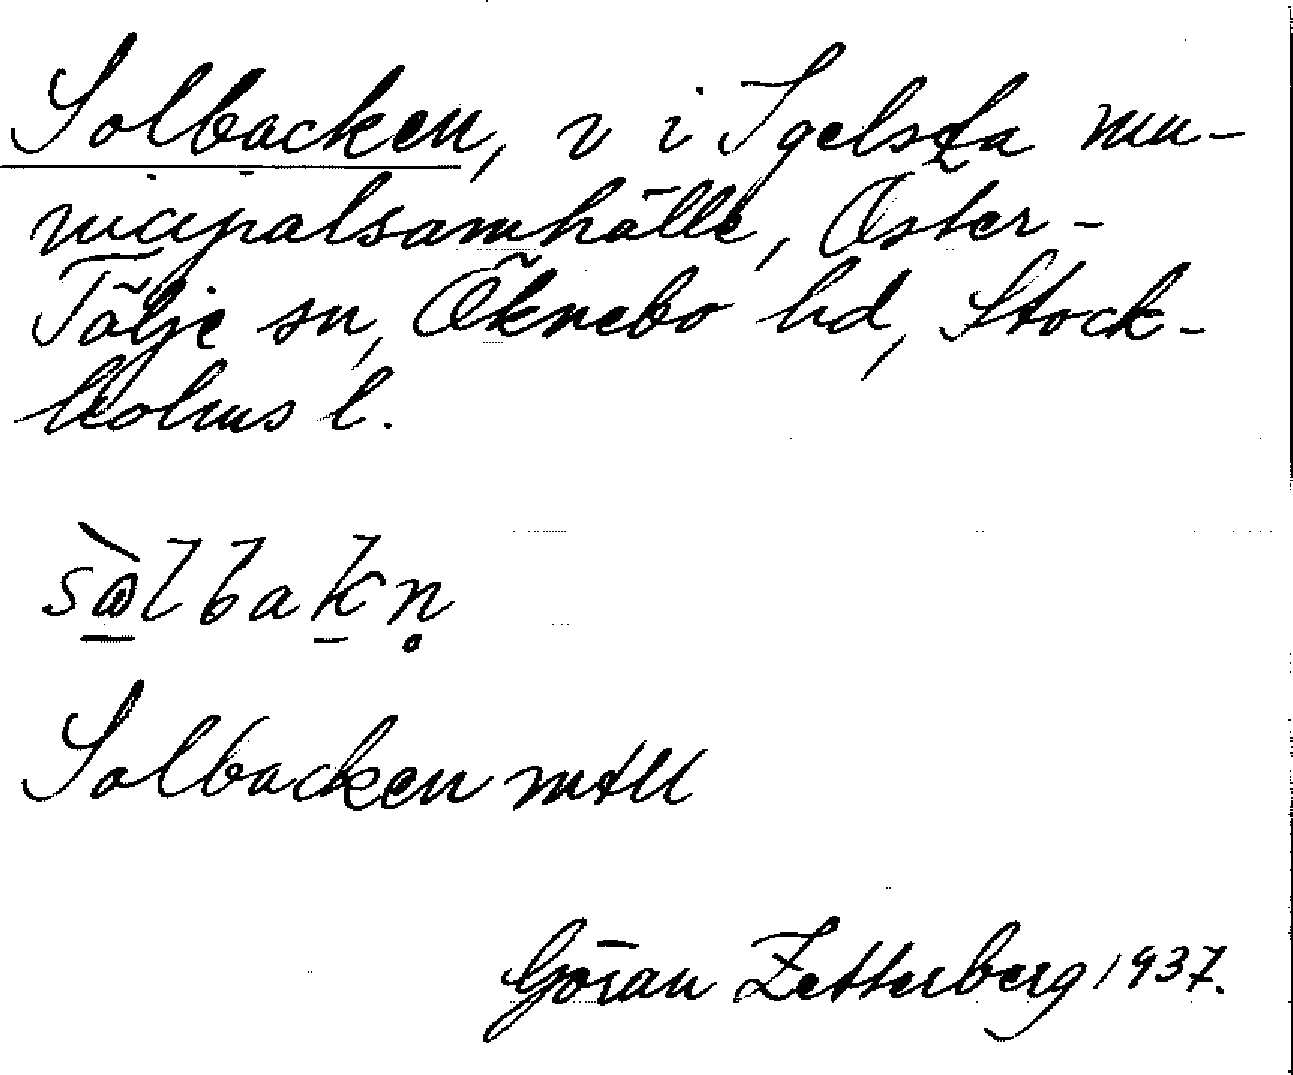 Solbacken, v i Igelsta mu-
nicipalsamhälle, Öster-
Tälje sn, Öknebo hd, Stock-
holms l.
Solbacken mtll
Göran Zetterberg 1937.